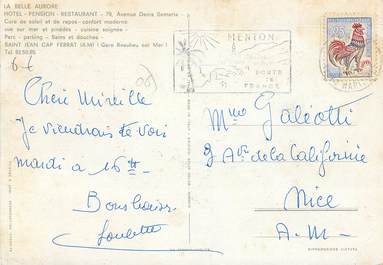 LA BELLE AURORE
HOTEL - PENSION - RESTAURANT - 79, Avenue Denis Semeria
Cure de soleil et de repos - confort moderne
vue sur mer et pinèdes - cuisine soignée
Parc - parking - Bains et douches
SAINT JEAN CAP FERRAT (A.M) ( Gare Beaulieu sur Mer )
Tél. 82.50.85
MENTON
PORTE
DE
FRANCE
Chère Mireille
Je viendrais te voir
mardi à 16 H
Bons baisers
Mme Galéotti
3 Av. de la Californie
Nice
A.M-
RIPRODUZIONE VIETATA